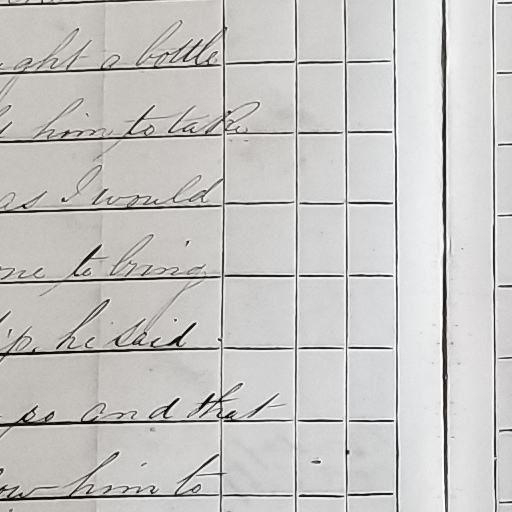 ght a bottle
him to take
as I would
me to bring
he said
so and that
ow him to